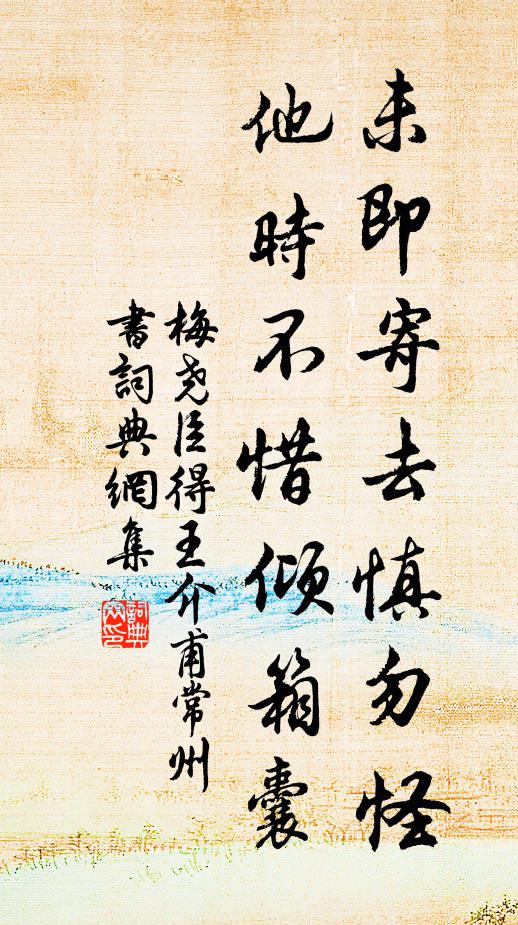 未即寄去慎勿怪
他時不惜傾箱囊
梅尧臣得王介甫常州
書詞典網集
詞典网印